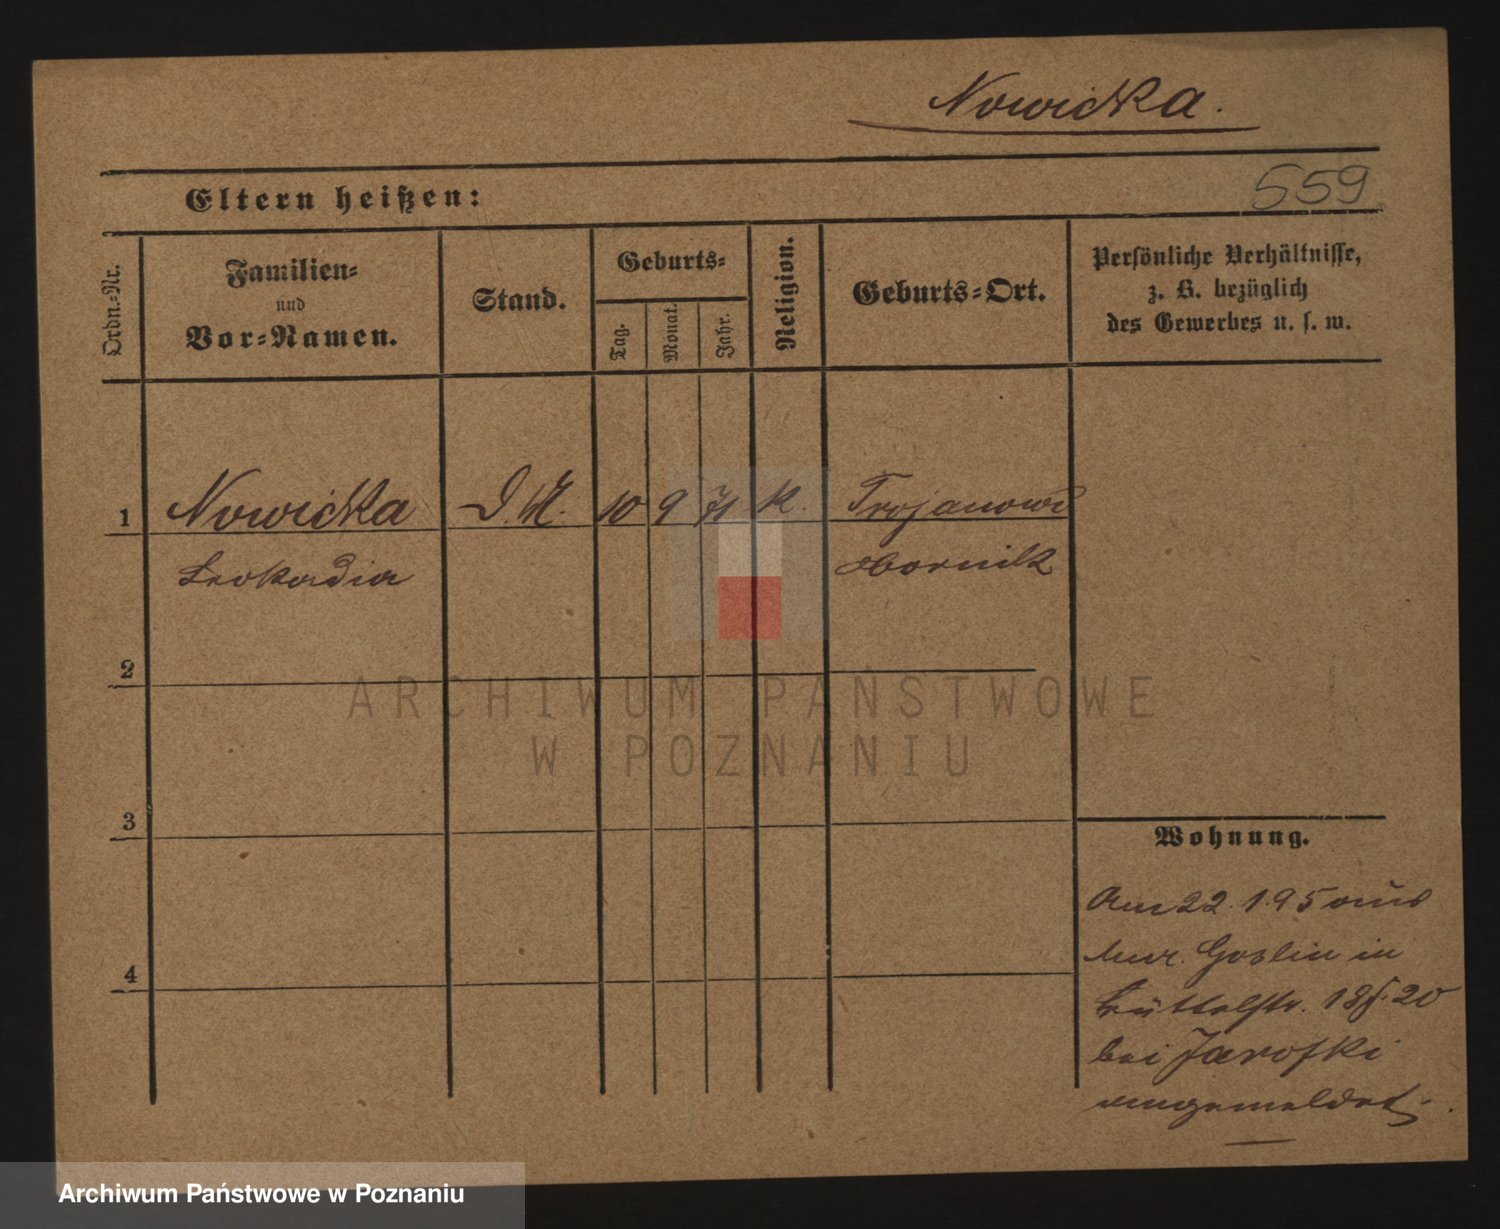 Nowicka.
559
Eltern heißen:
Ordn.-Nr.
Familien-
und
Vor-Namen.
Stand.
Geburts-
Tag.
Monat.
Jahr.
Religion.
Geburts-Ort.
Persönliche Verhältnisse,
z. B. bezüglich
des Gewerbes u. s. w.
1
Nowicka
D. M.
10
9
71
k.
Trojanowo
Obornik
Leokadia
2
ARCHIWUM PAŃSTWOWE
W POZNANIU
3
Wohnung.
Am 22. 1. 95 aus
Mur. Goslin in
Büttelstr. 18 20
bei Jarofki
angemeldet.
4
Archiwum Państwowe w Poznaniu